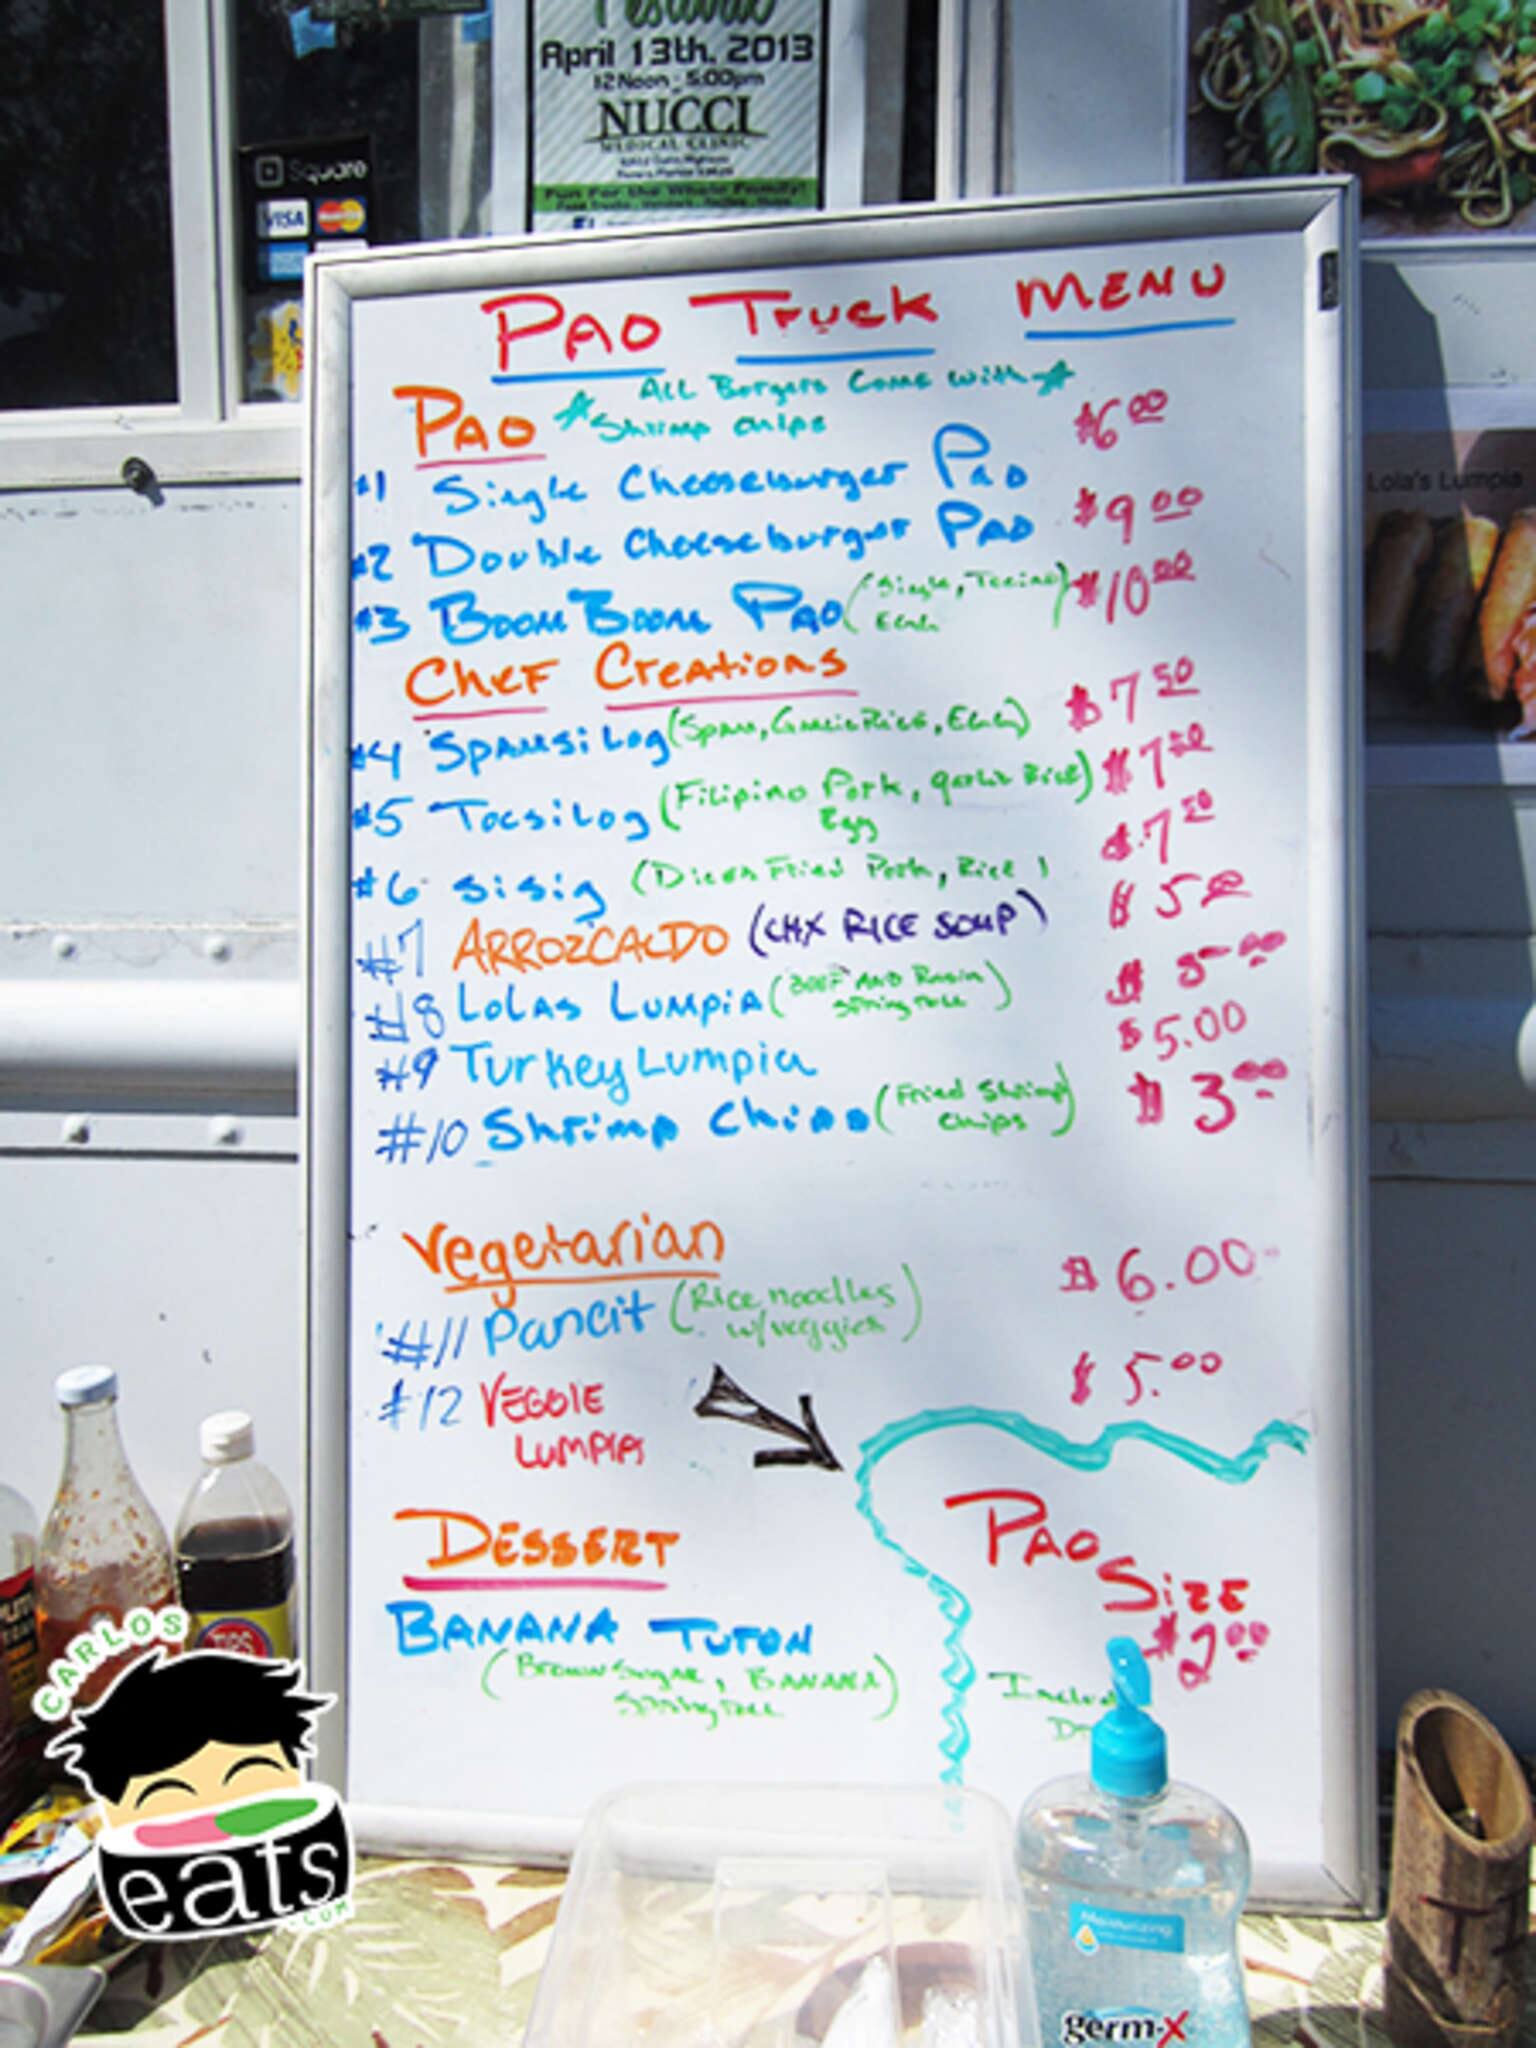 April 13th, 2013
12 Noon - 5:00pm
NUCCI
MEDICAL CLINIC
Fun For the Whole Family!
Square
VISA
PAO TRUCK MENU
PAO
*All Borgers Come With*
Shrimp chips
#1 Single Cheeseburger PAO $6.00
#2 Double Cheeseburger PAO $9.00
#3 BOOM BOOM PAO (Single, Tocino, Egg) $10.00
CHEF CREATIONS
#4 SPAMSILOG (Spam, Garlic Rice, Egg) $7.50
#5 TOCSILOG (Filipino Pork, garlic Rice, Egg) $7.50
#6 SISIG (Diced Fried Pork, Rice) $7.50
#7 ARROZCALDO (CHX RICE SOUP) $5.00
#8 LOLAS LUMPIA (BEEF AND Raisin Spring roll) $5.00
#9 Turkey Lumpia $5.00
#10 Shrimp Chips (Fried Shrimp Chips) $3.00
Vegetarian
#11 Pancit (Rice noodles w/veggies) $6.00
#12 VEGGIE LUMPIA $5.00
DESSERT
BANANA TURON
(Brown Sugar, BANANA Spring roll)
PAO
Size
$2.00
Lola's Lumpia
TIPS
CARLOS
eats
.COM
Moisturizing
germ-X